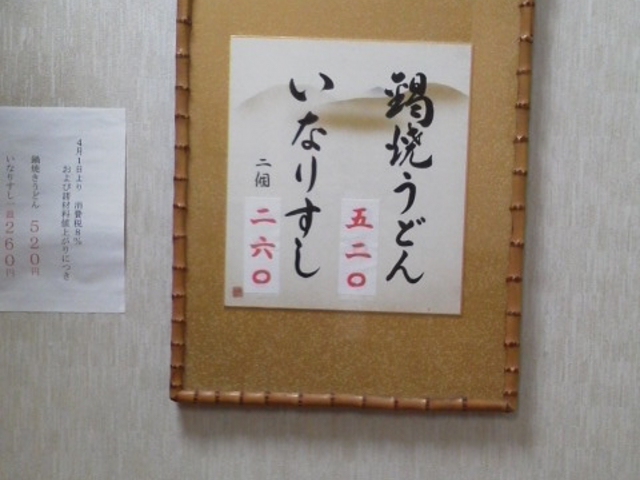 鍋焼うどん
五二〇
いなりすし
二個
二六〇
4月1日より 消費税8%
および諸材料値上がりにつき
鍋焼きうどん 520円
いなりすし一皿260円